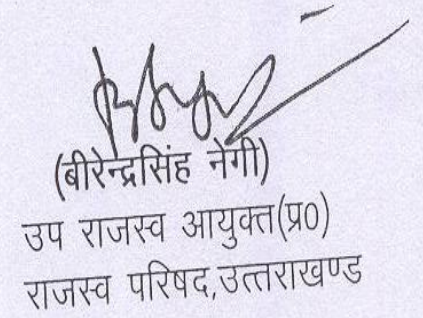 (बीरेन्द्रसिंह नेगी)
उप राजस्व आयुक्त(प्र0)
राजस्व परिषद,उत्तराखण्ड